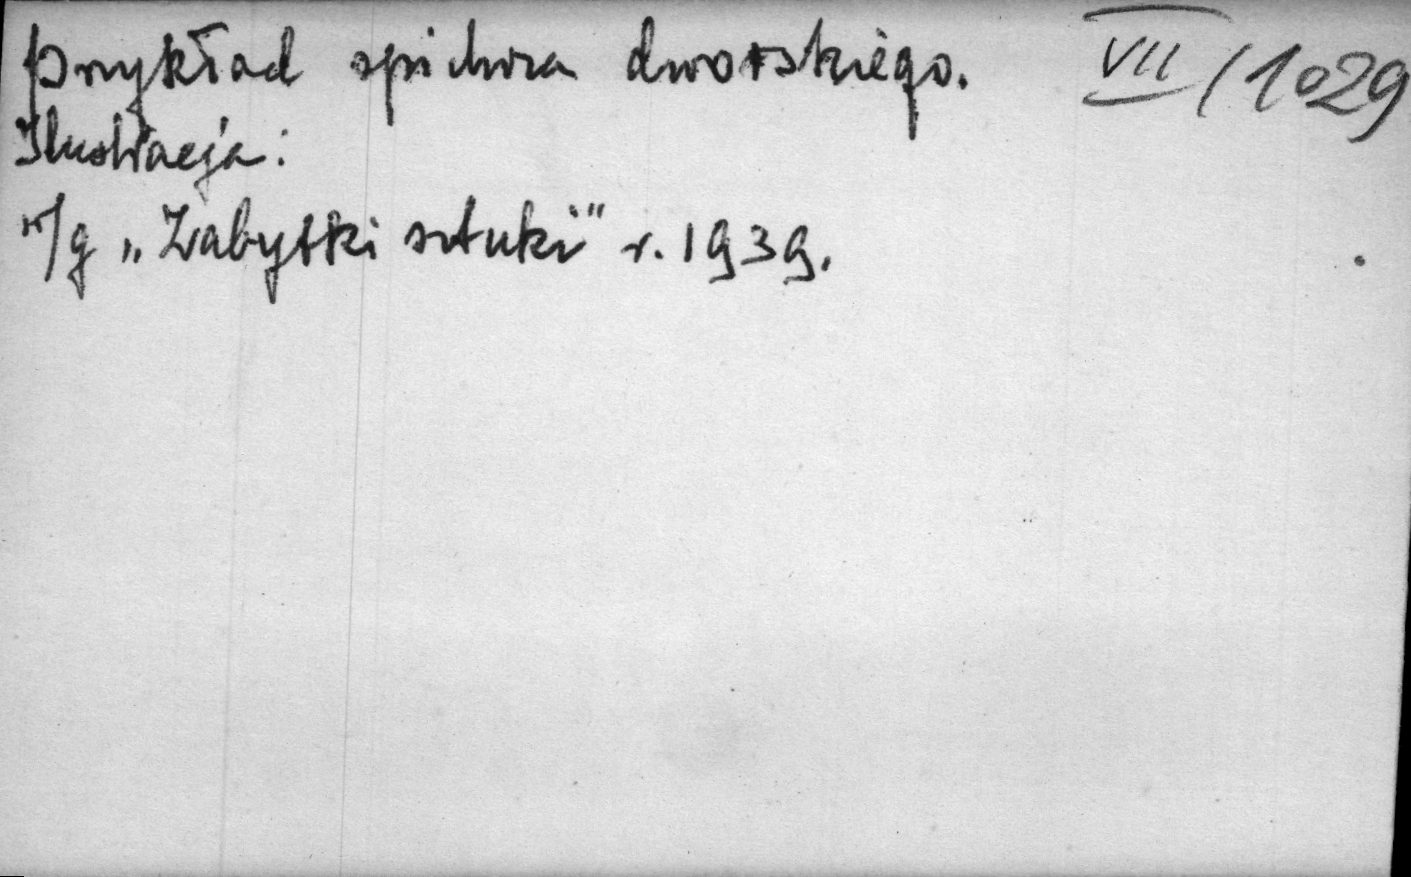 Przykład spichrza dworskiego. VII/1029
Ilustracja:
w/g „Zabytki sztuki" r. 1939.